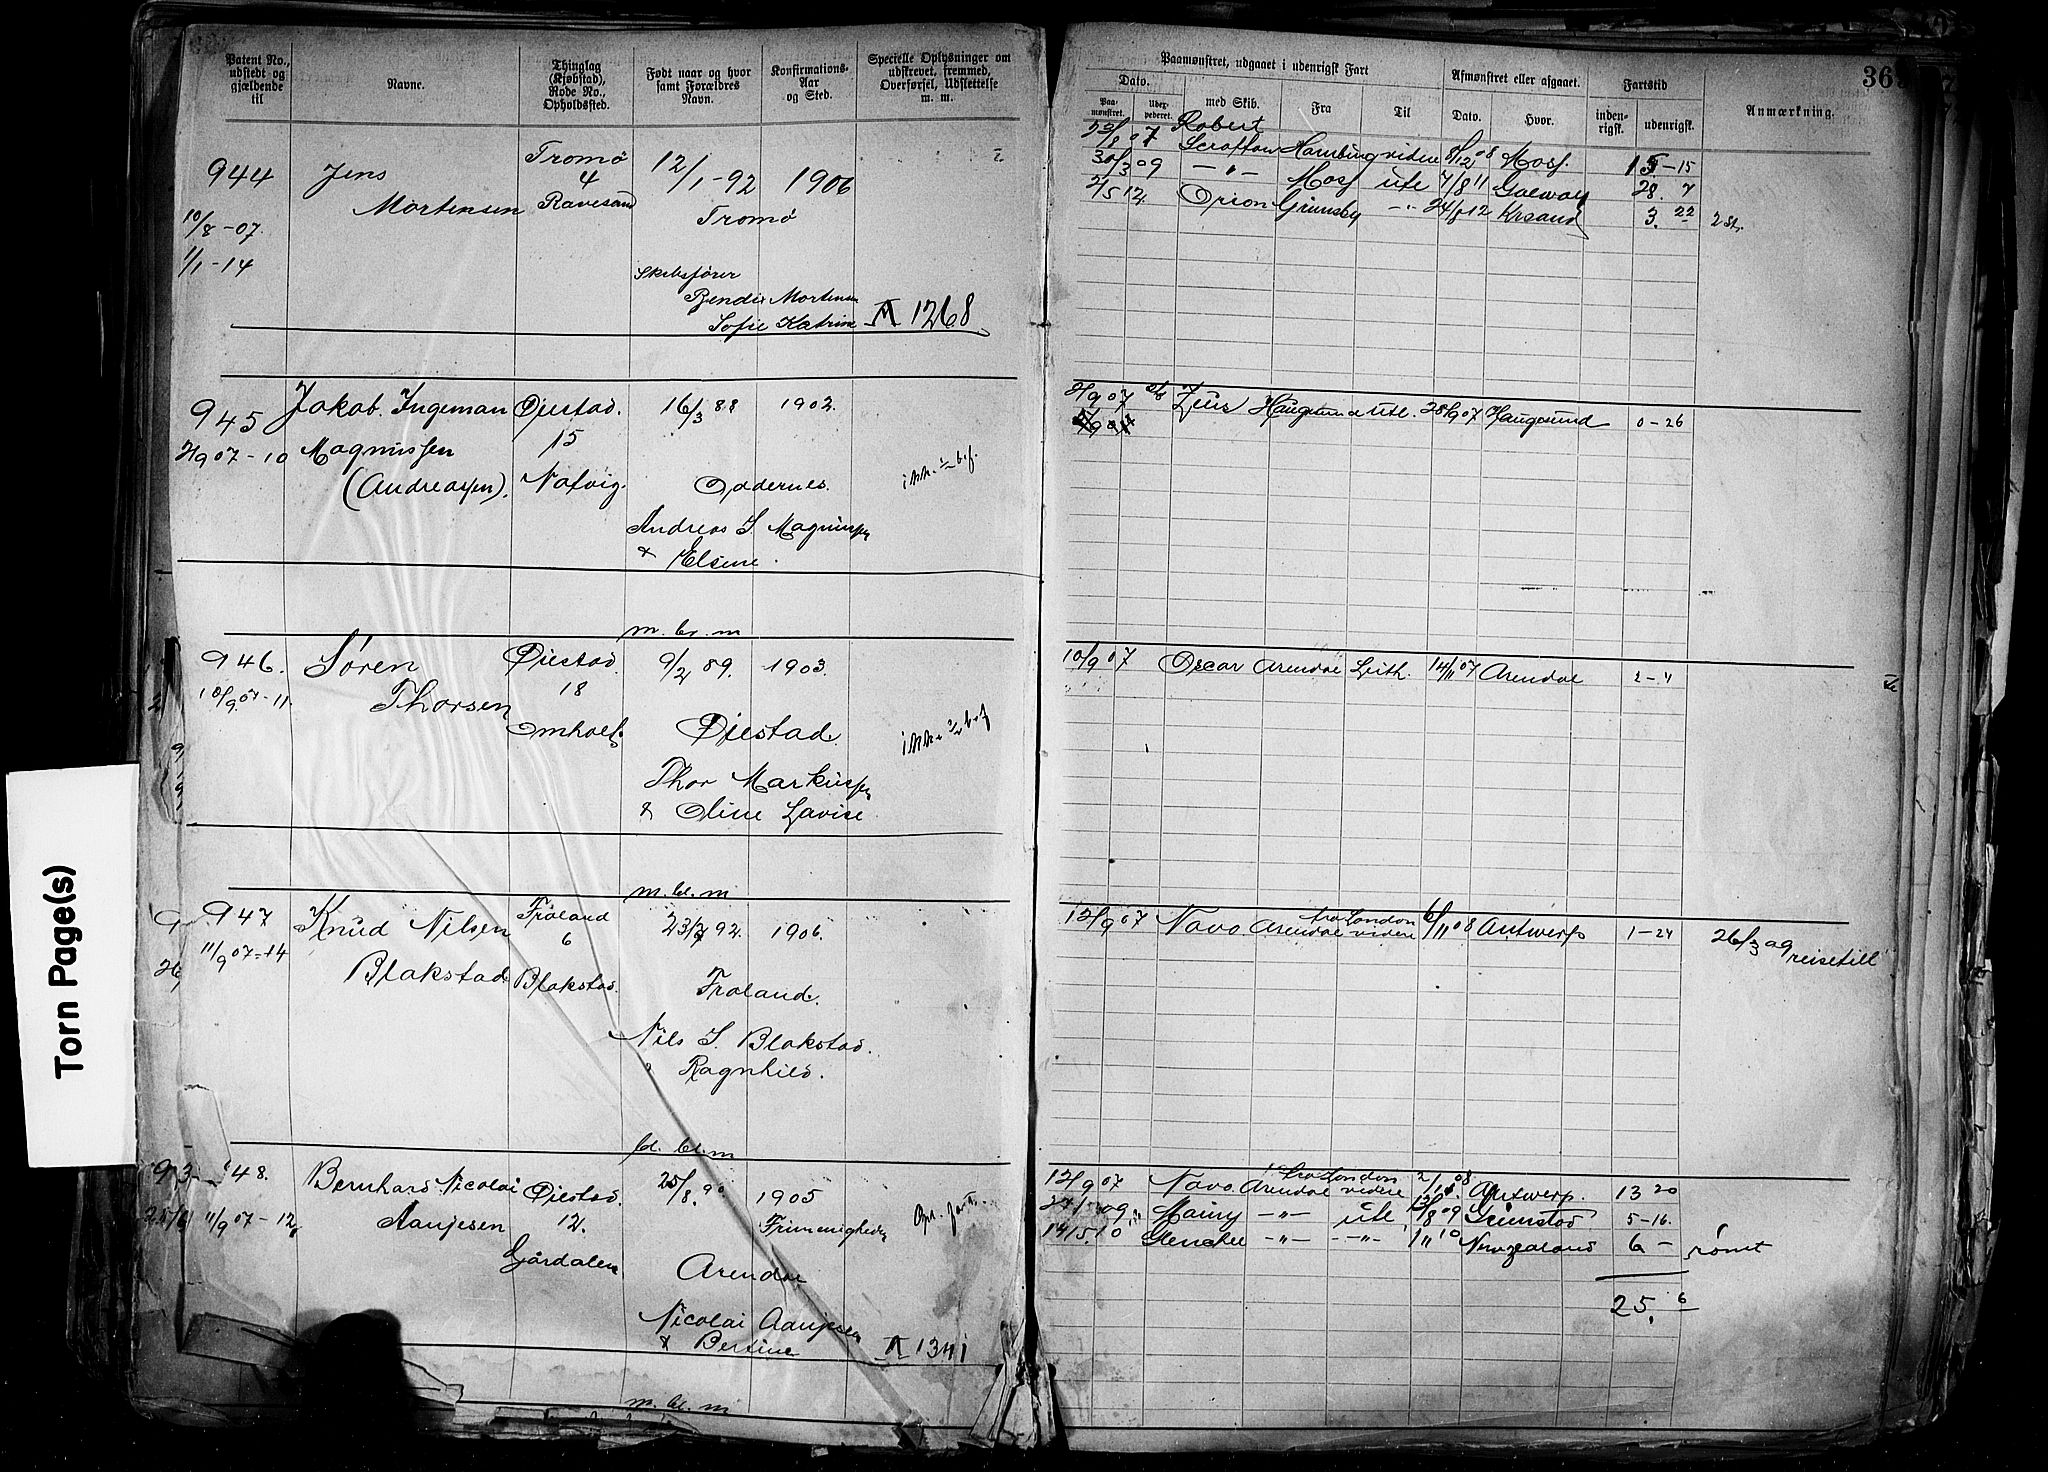 Torn Page(s)
Patent No., udstedt og gjældende til
Navne.
Thinglag (Kjøbstad), Rode No., Opholdssted.
Født naar og hvor samt Forældres Navn.
Konfirmations-Aar og Sted.
Specielle Oplysninger om udskrevet, fremmed, Overførsel, Udslettelse m. m.
Paamønstret, udgaaet i udenrigsk Fart
Dato.
Paamønstret.
med Skib.
Fra
Til
Afmønstret eller afgaaet.
Dato.
Hvor.
Fartstid
indenrigsk.
udenrigsk.
Anmærkning.
944
10/8-07
1/1-14
Jens
Mortensen
Tromø
4
Ravesand
12/1-92
1906
Tromø
Skibsfører
Bendix Mortensen
Sofie Katrine
1268
Robert
Scrafton Hamburg videre 8/12 08 Moss. 15-15
30/3 09 -"- Moss ute 7/8 11 Galway 28. 7
2/5 12. Orion Grimsby -"- 24/8 12 Krsand 3. 22 2 st.
945
2/9 07-10
Jakob Ingeman
Magnussen
(Andreassen).
Øiestad.
15
Natvig.
16/3 88
1902.
Oddernes.
Andreas S. Magnussen
& Elsine.
2/9 07 Zeus Haugesund Ute. 28/9 07 Haugesund 0-26
m. bl. m
946.
10/9 07-11
Søren
Thorsen
Øiestad.
18
Omholt
9/2 89.
1903.
Øiestad.
Thor Markussen
& Oline Lavise
10/9 07 Oscar Arendal Leith. 14/11 07 Arendal 2-4
m. bl. m
947
11/9 07-14
Knud Nilsen
Blakstad
Frøland
6
Blakstad.
92.
1906.
Froland.
Nils S. Blakstad.
" Ragnhild.
12/9 07 Navo Arendal fra London videre 6/11 08 Antwerp 1-24 26/3 09 reisetill
bl. bl. m
948.
11/9 07-12
Bernhard Nicolai
Aanjesen
Øiestad.
12.
Gårdalen
25/8 90
1905
Frimenigheden
Arendal
Nicolai Aanjesen
& Bertine
1341
12/9 07 Navo Arendal fra London videre Antwerp. 13 20
Mainy -"- ute 09 Grimstad 5-16.
14/5 10 Glenelee -"- -"- 1/11 10 Newzealand 6 - rømt
25. 6
m. bl. m